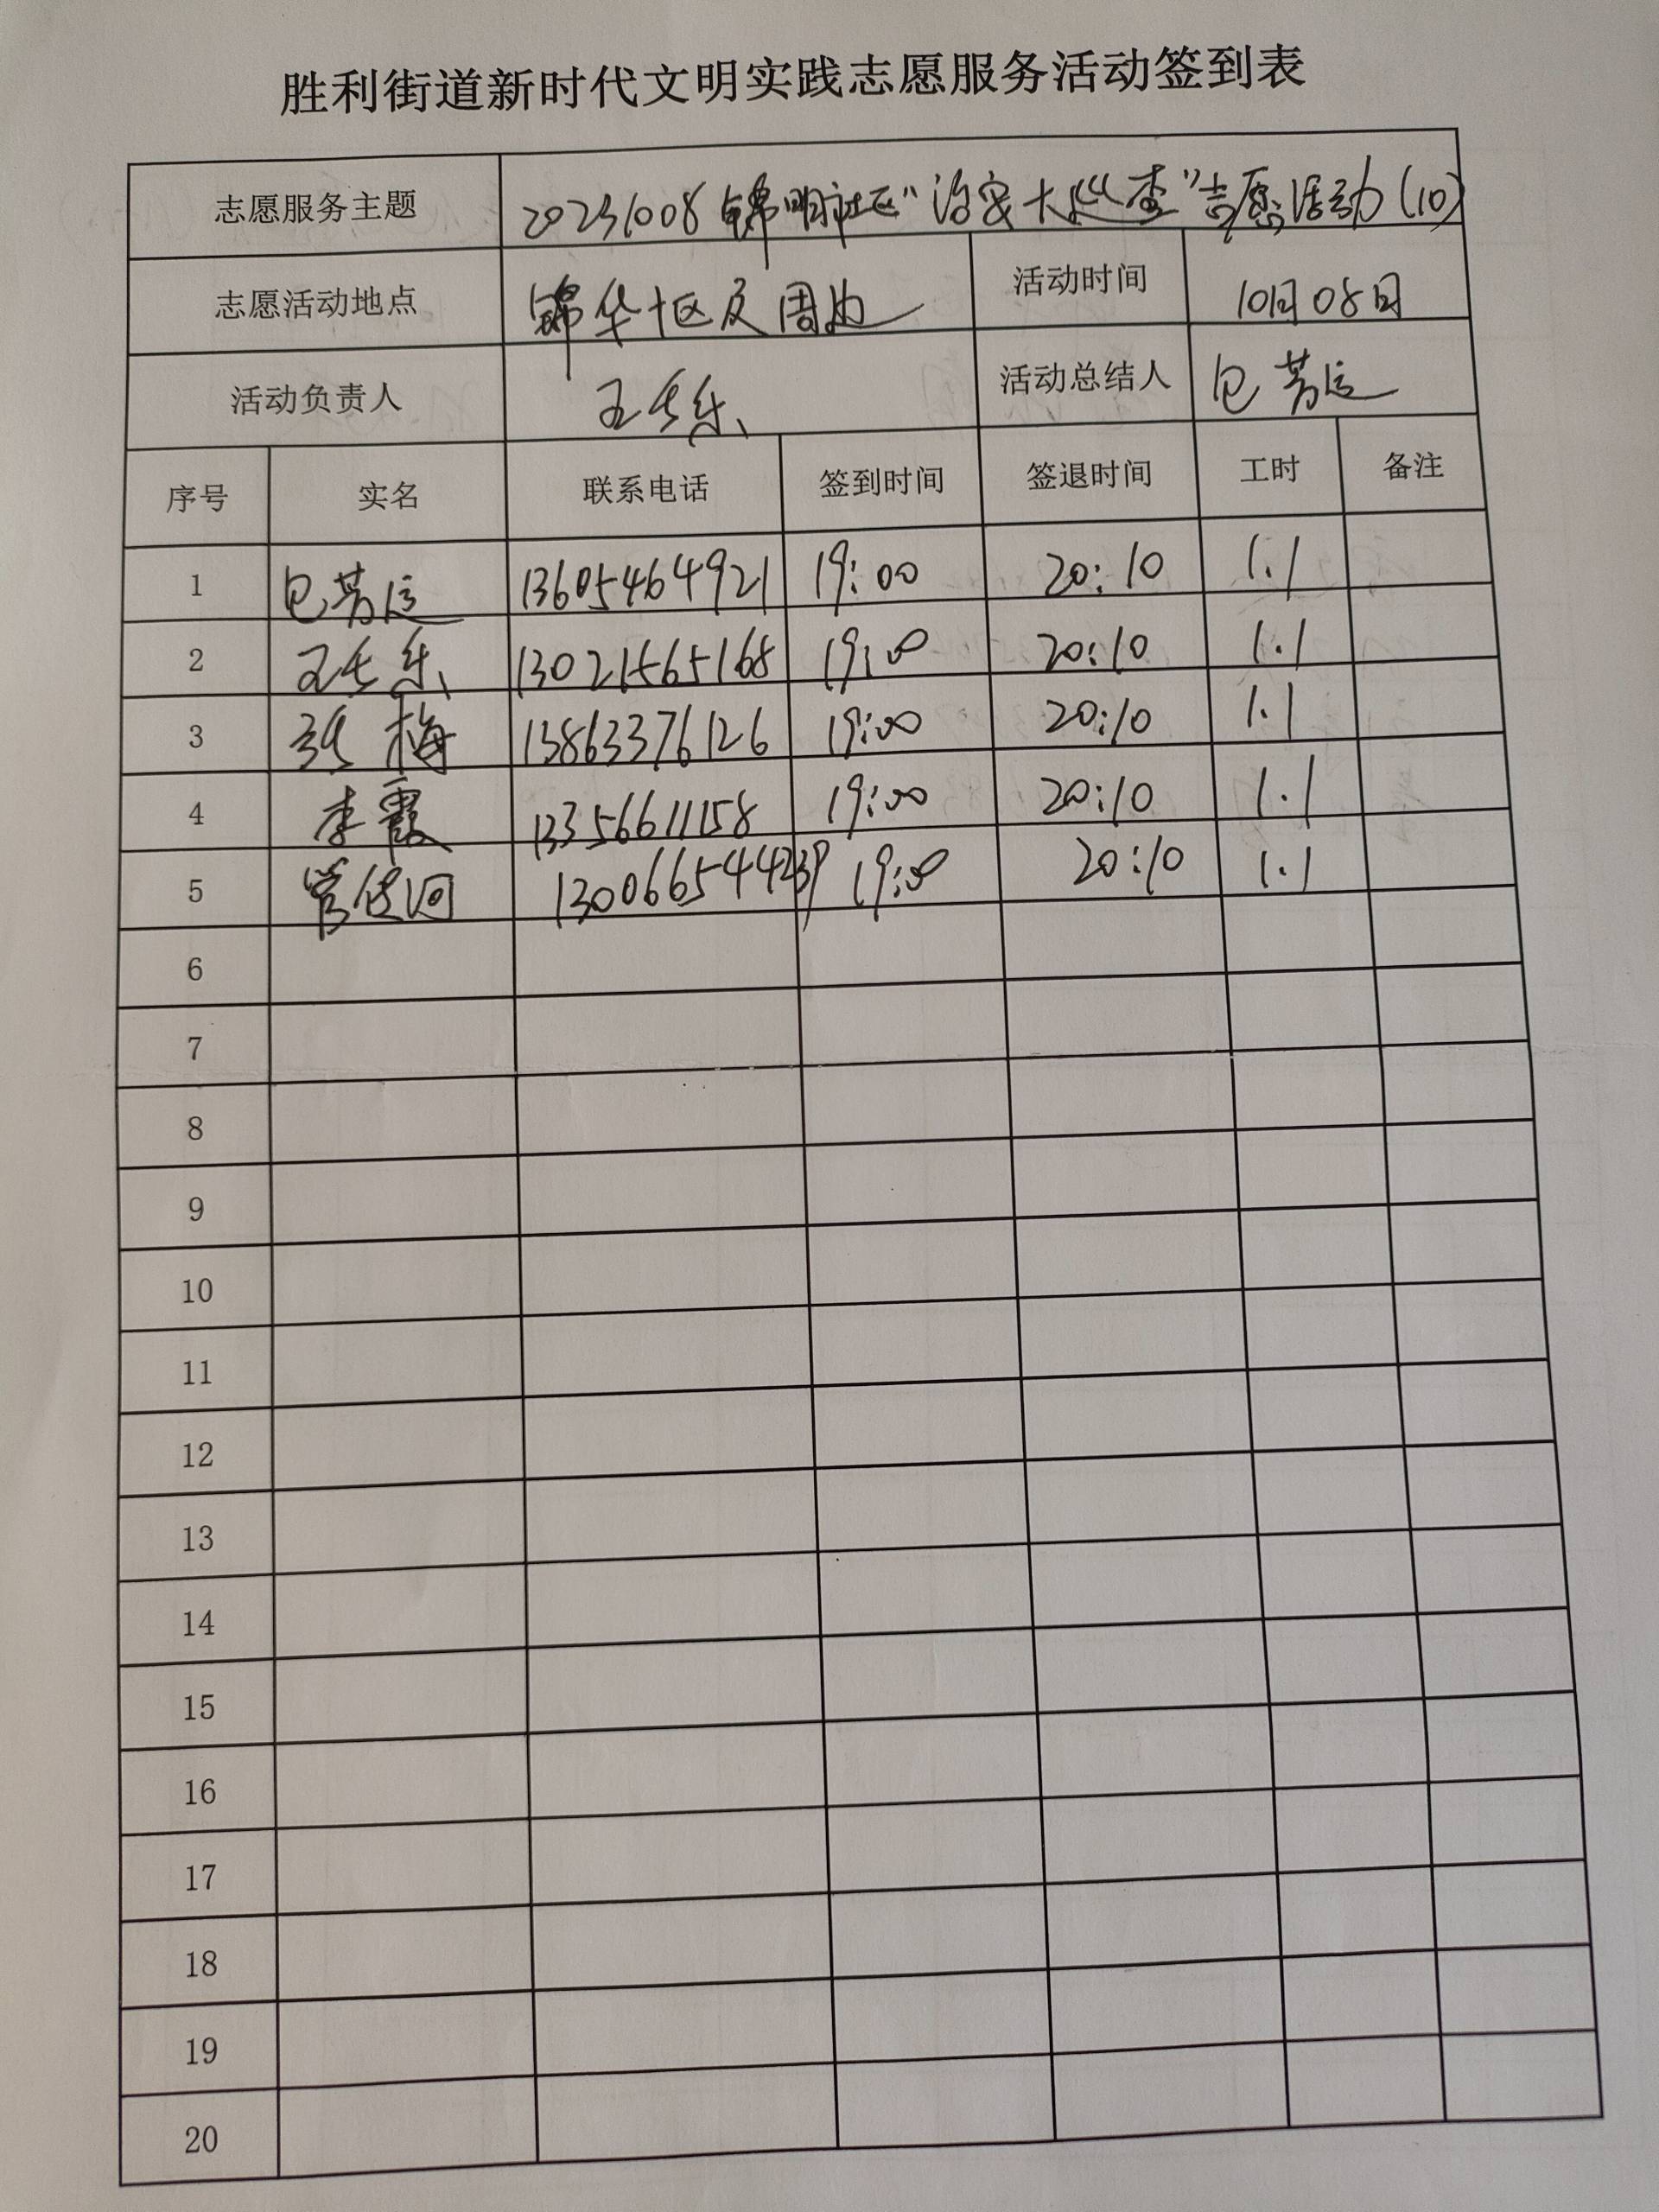 胜利街道新时代文明实践志愿服务活动签到表
志愿服务主题 20231008锦明社区"治安大巡查"志愿活动(10)
志愿活动地点 锦华十区及周边 活动时间 10月08日
活动负责人 王长乐 活动总结人 包芳信
序号 实名 联系电话 签到时间 签退时间 工时 备注
1 包芳信 13605464921 19:00 20:10 1.1
2 王长乐 13021565168 19:00 20:10 1.1
3 张梅 13863376126 19:00 20:10 1.1
4 李霞 13356611158 19:00 20:10 1.1
5 19:00 20:10 1.1
6
7
8
9
10
11
12
13
14
15
16
17
18
19
20